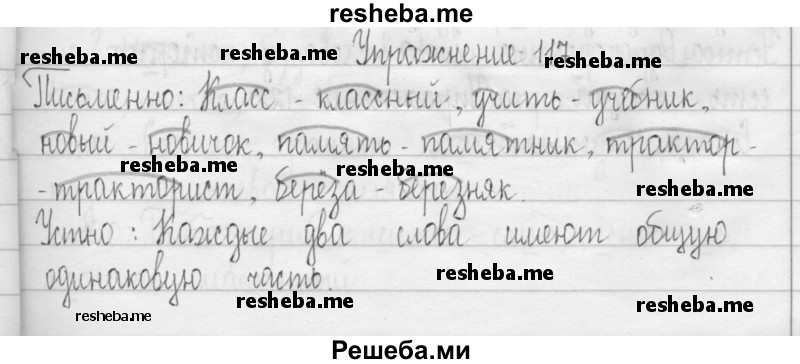 resheba.me
Упражнение 117
resheba.me resheba.me resheba.me
Письменно: Класс - классный, учить - учебник,
новый - новичок, память - памятник, трактор -
resheba.me resheba.me
- тракторист, берёза - березняк. resheba.me
Устно: Каждые два слова имеют общую
одинаковую часть resheba.me
resheba.me resheba.me
resheba.me
Решеба.ми